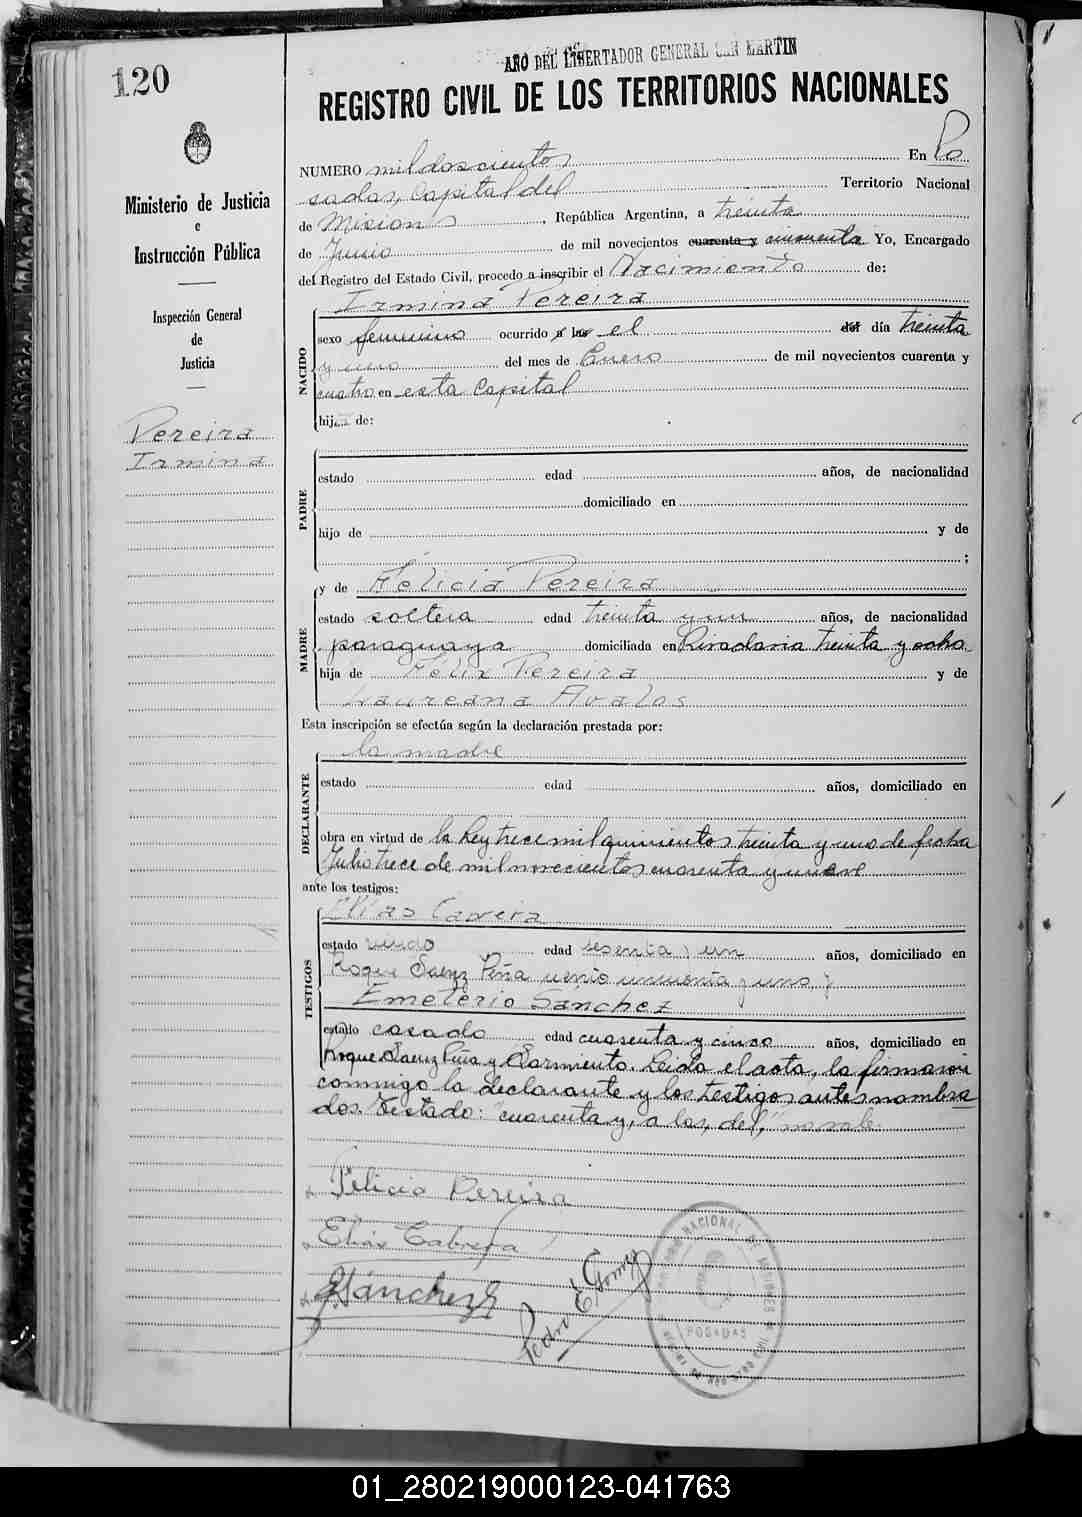 120
AÑO DEL LIBERTADOR GENERAL SAN MARTIN
REGISTRO CIVIL DE LOS TERRITORIOS NACIONALES
Ministerio de Justicia
e
Instrucción Pública
Inspección General
de
Justicia
Pereira
Irmina
NUMERO mil doscientos En Po
sadas, Capital del Territorio Nacional
de Misiones, República Argentina, a treinta
de Junio de mil novecientos cuarenta y cincuenta Yo, Encargado
del Registro del Estado Civil, procedo a inscribir el Nacimiento de:
NACIDO
Irmina Pereira
sexo femenino ocurrido a las el del día treinta
y uno del mes de Enero de mil novecientos cuarenta y
cuatro en esta Capital
hij de:
PADRE
estado edad años, de nacionalidad
domiciliado en
hijo de y de
;
MADRE
y de Felicia Pereira
estado soltera edad treinta y un años, de nacionalidad
paraguaya domiciliada en Rivadavia treinta y ocho
hija de Félix Pereira y de
Laureana Avalos
Esta inscripción se efectúa según la declaración prestada por:
DECLARANTE
la madre
estado edad años, domiciliado en
obra en virtud de la Ley trece mil quinientos treinta y uno de fecha
Julio trece de mil novecientos cuarenta y nueve
ante los testigos:
TESTIGOS
Elías Cabrera
estado viudo edad sesenta y un años, domiciliado en
Roque Saenz Peña ciento cincuenta y uno y
Emeterio Sánchez
estado casado edad cuarenta y cinco años, domiciliado en
Roque Saenz Peña y Sarmiento. Leída el acta, la firmaron
conmigo la declarante y los testigos antes nombra
dos. Testado: "cuarenta y, a las, del," no vale.
Felicia Pereira
Elías Cabrera
Sánchez
Pedro E. Gomez
POSADAS
01_280219000123-041763